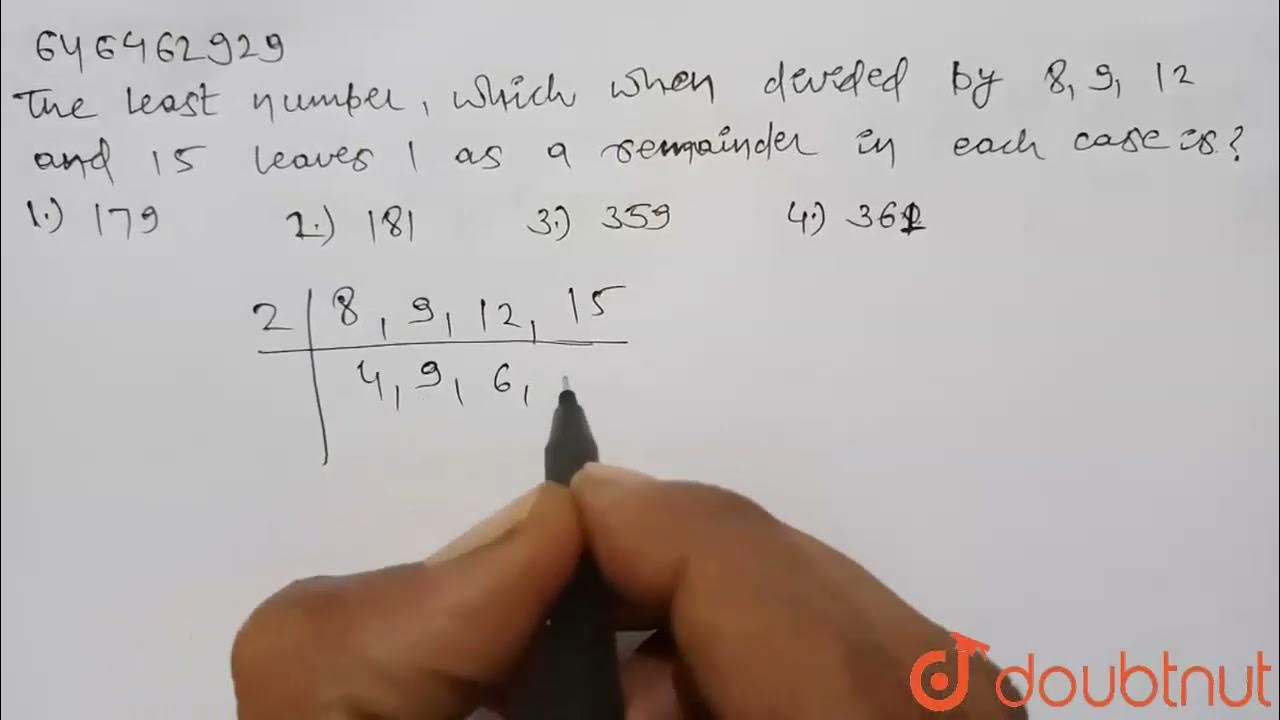 646462929
The least number, which when devided by 8, 9, 12
and 15 leaves 1 as a remainder in each case is?
1.) 179 2.) 181 3.) 359 4.) 361
2 8, 9, 12, 15
4, 9, 6,
doubtnut